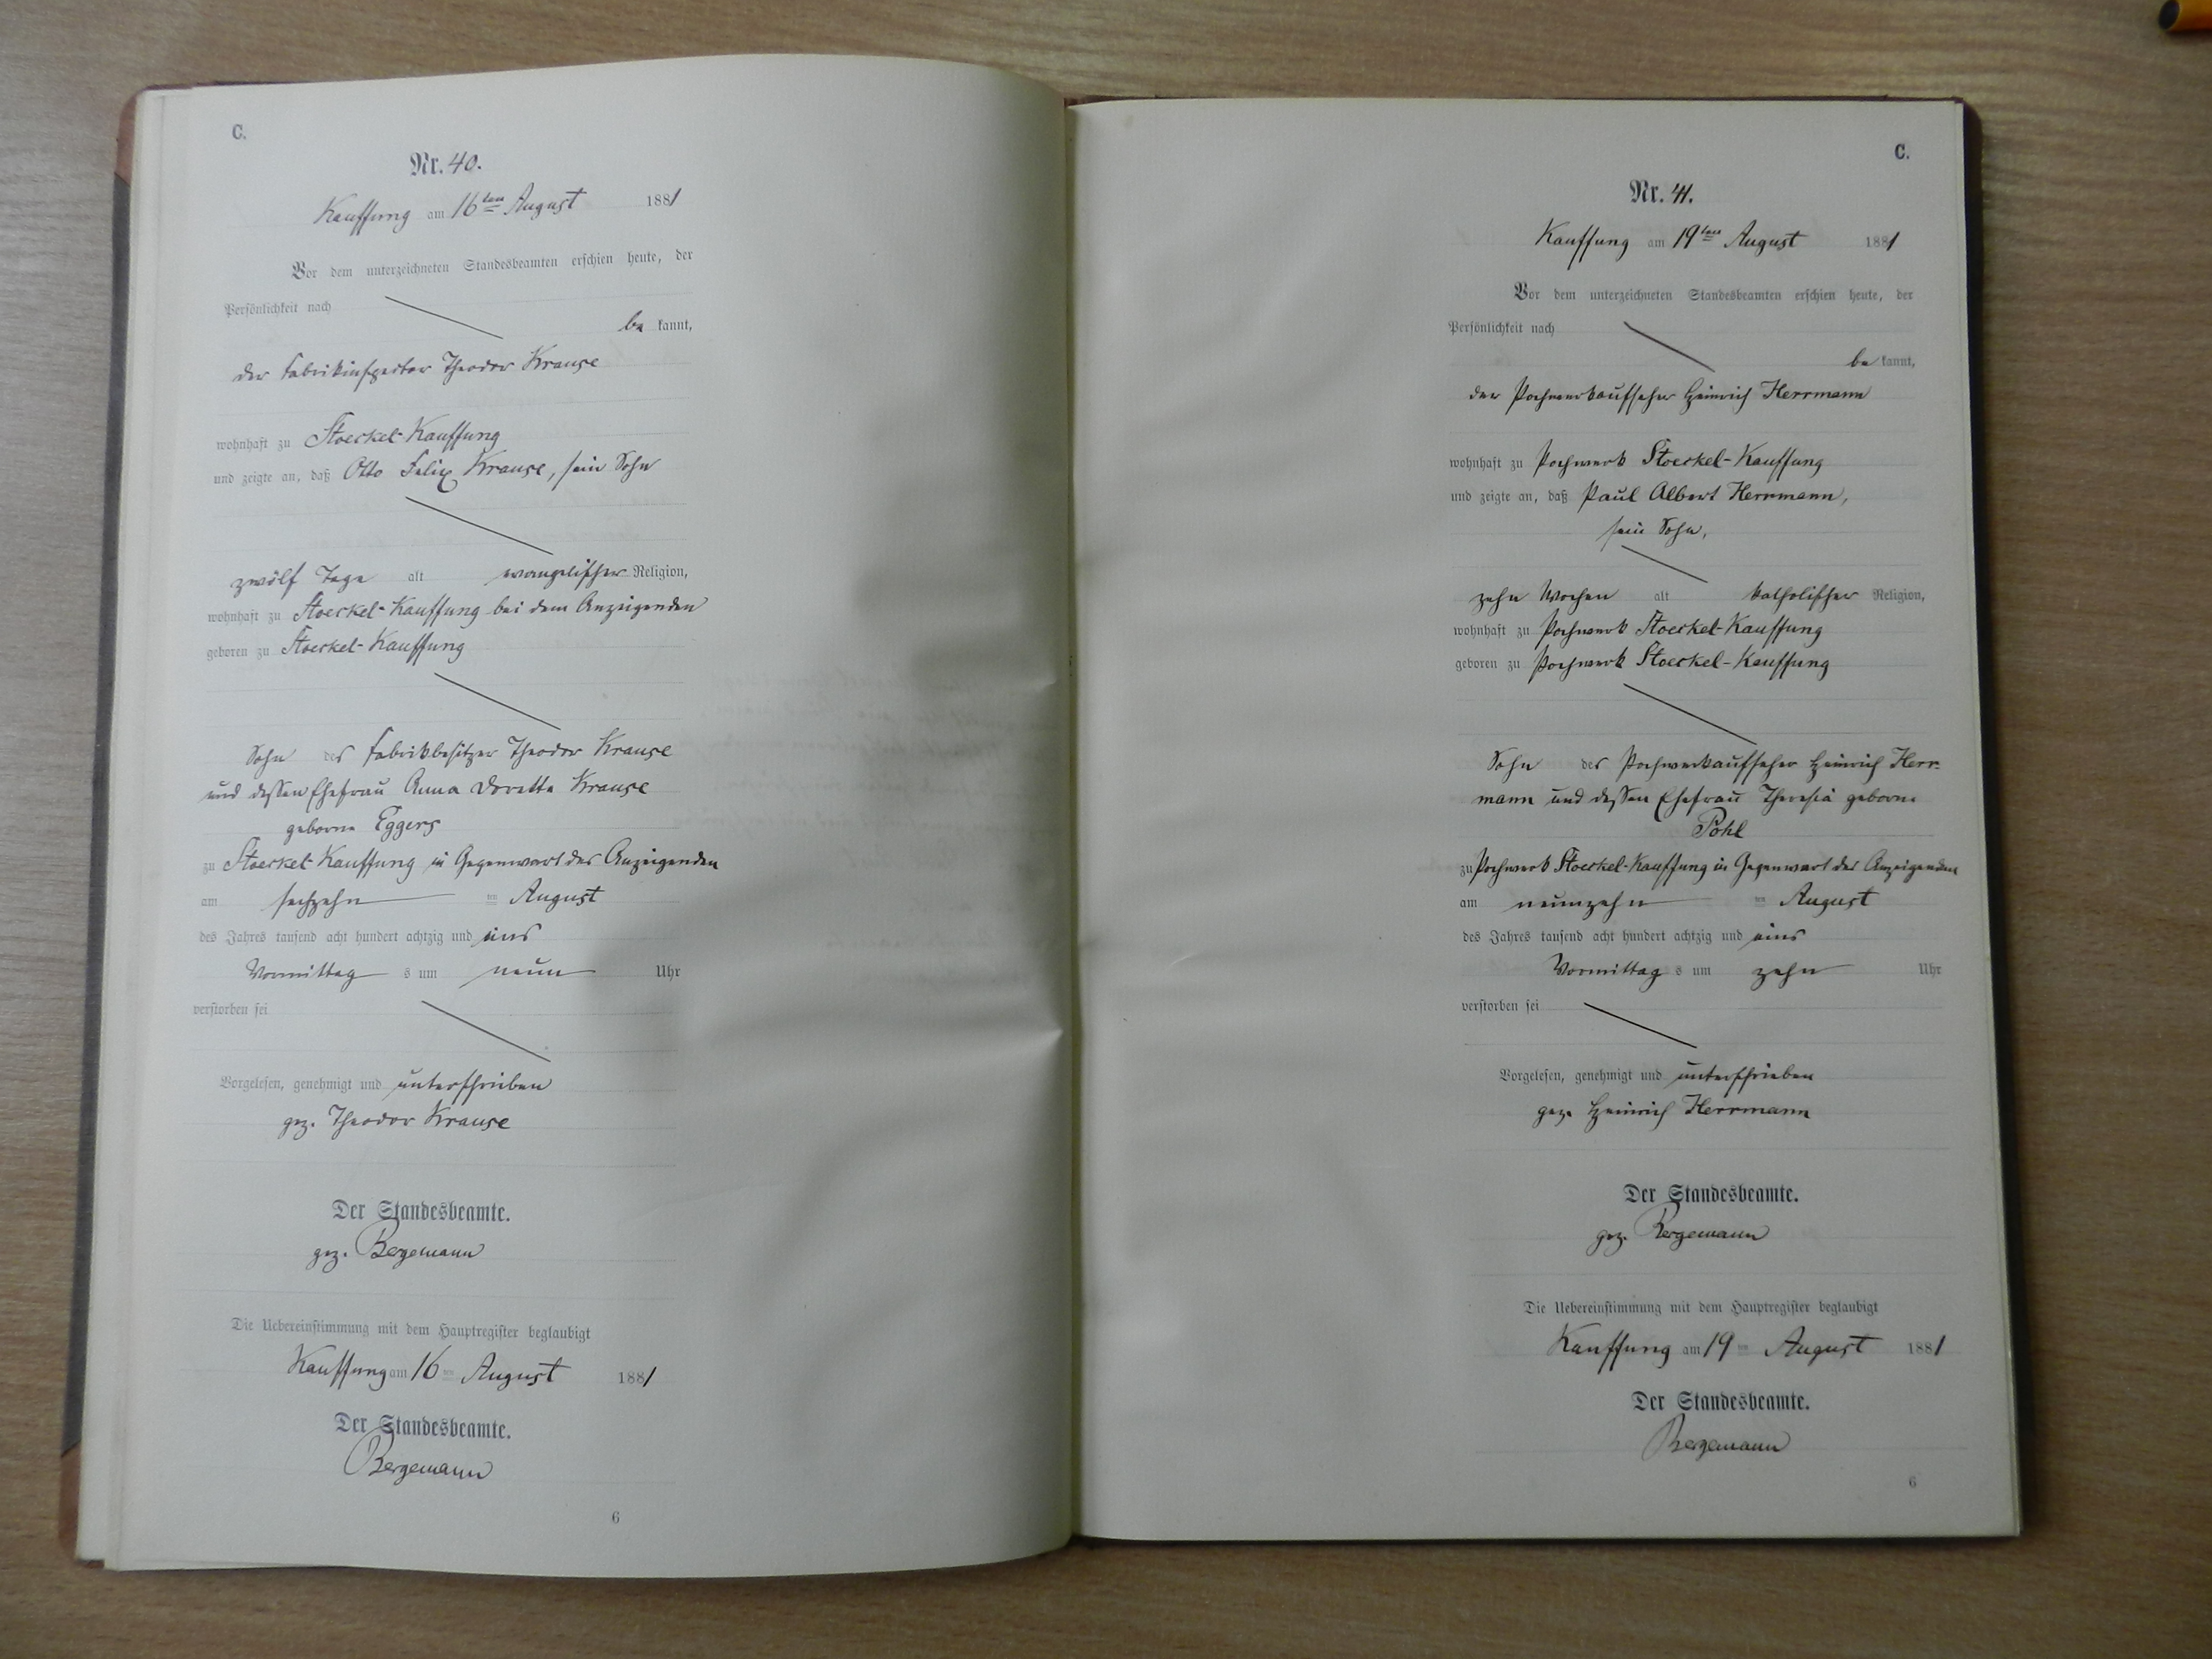 C.
Nr. 40.
Kauffung am 16ten August 1881
Vor dem unterzeichneten Standesbeamten erschien heute, der
Persönlichkeit nach
be kannt,
der Fabrikinspector Theodor Krause
wohnhaft zu Stoeckel-Kauffung
und zeigte an, daß Otto Felix Krause, sein Sohn
zwölf Tage alt evangelischer Religion,
wohnhaft zu Stoeckel-Kauffung bei dem Anzeigenden
geboren zu Stoeckel-Kauffung
Sohn des Fabrikbesitzer Theodor Krause
und dessen Ehefrau Anna Dorette Krause
geborne Eggers
zu Stoeckel-Kauffung in Gegenwart des Anzeigenden
am sechzehn ten August
des Jahres tausend acht hundert achtzig und eins
Vormittag s um neun Uhr
verstorben sei
Vorgelesen, genehmigt und unterschrieben
gez. Theodor Krause
Der Standesbeamte.
gez. Bergemann
Die Uebereinstimmung mit dem Hauptregister beglaubigt
Kauffung am 16 ten August 1881
Der Standesbeamte.
Bergemann
6
C.
Nr. 41.
Kauffung am 19ten August 1881
Vor dem unterzeichneten Standesbeamten erschien heute, der
Persönlichkeit nach
be kannt,
der Pochwerkaufseher Heinrich Herrmann
wohnhaft zu Pochwerk Stoeckel-Kauffung
und zeigte an, daß Paul Albert Herrmann,
sein Sohn,
zehn Wochen alt katholischer Religion,
wohnhaft zu Pochwerk Stoeckel-Kauffung
geboren zu Pochwerk Stoeckel-Kauffung
Sohn des Pochwerkaufseher Heinrich Herr-
mann und dessen Ehefrau Theresia geborne
Pohl
zu Pochwerk Stoeckel-Kauffung in Gegenwart des Anzeigenden
am neunzehn ten August
des Jahres tausend acht hundert achtzig und eins
Vormittag s um zehn Uhr
verstorben sei
Vorgelesen, genehmigt und unterschrieben
gez. Heinrich Herrmann
Der Standesbeamte.
gez. Bergemann
Die Uebereinstimmung mit dem Hauptregister beglaubigt
Kauffung am 19 ten August 1881
Der Standesbeamte.
Bergemann
6